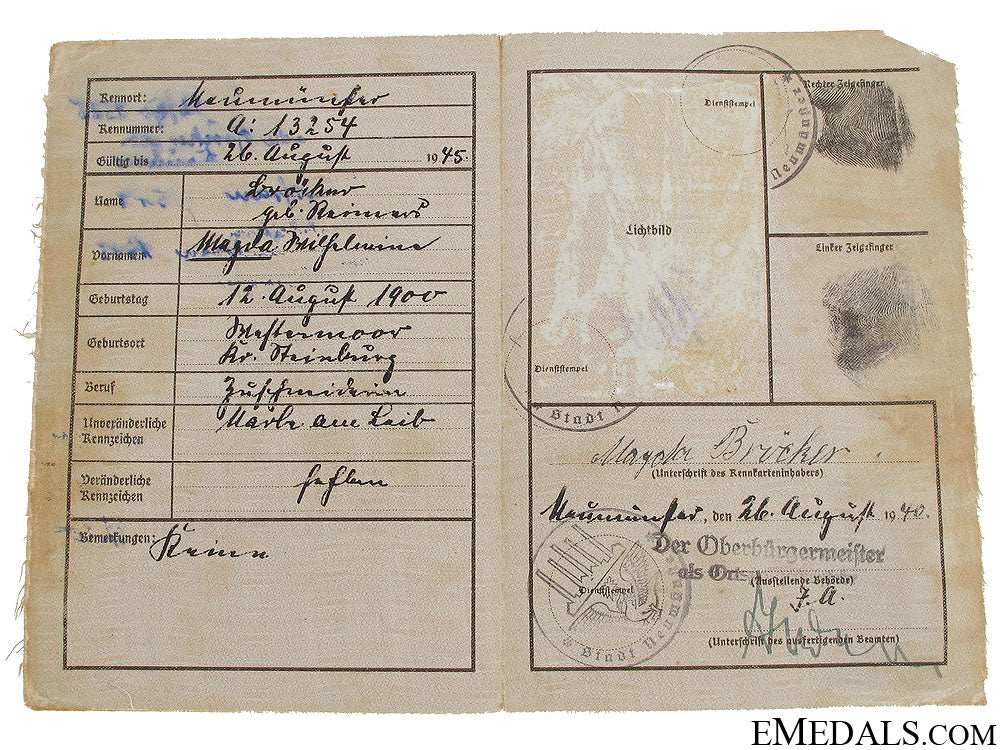 Kennort: Neumünster
Kennummer: A: 13254
Gültig bis 26. August 1945.
Name Bröcker
geb. Reimers
Vornamen Magda Wilhelmine
Geburtstag 12. August 1900
Geburtsort Westermoor
Kr. Steinburg
Beruf Zuschneiderin
Unveränderliche Kennzeichen Narbe am Leib
Veränderliche Kennzeichen fehlen
Bemerkungen: Keine
Dienststempel
Neumünster
Rechter Zeigefinger
Lichtbild
Linker Zeigefinger
Dienststempel
* Stadt N
Magda Bröcker
(Unterschrift des Kennkarteninhabers)
Neumünster, den 26. August 1940.
Der Oberbürgermeister
als Orts
(Ausstellende Behörde)
J. A.
Dienststempel
* Stadt Neumünster
(Unterschrift des ausfertigenden Beamten)
EMEDALS.COM